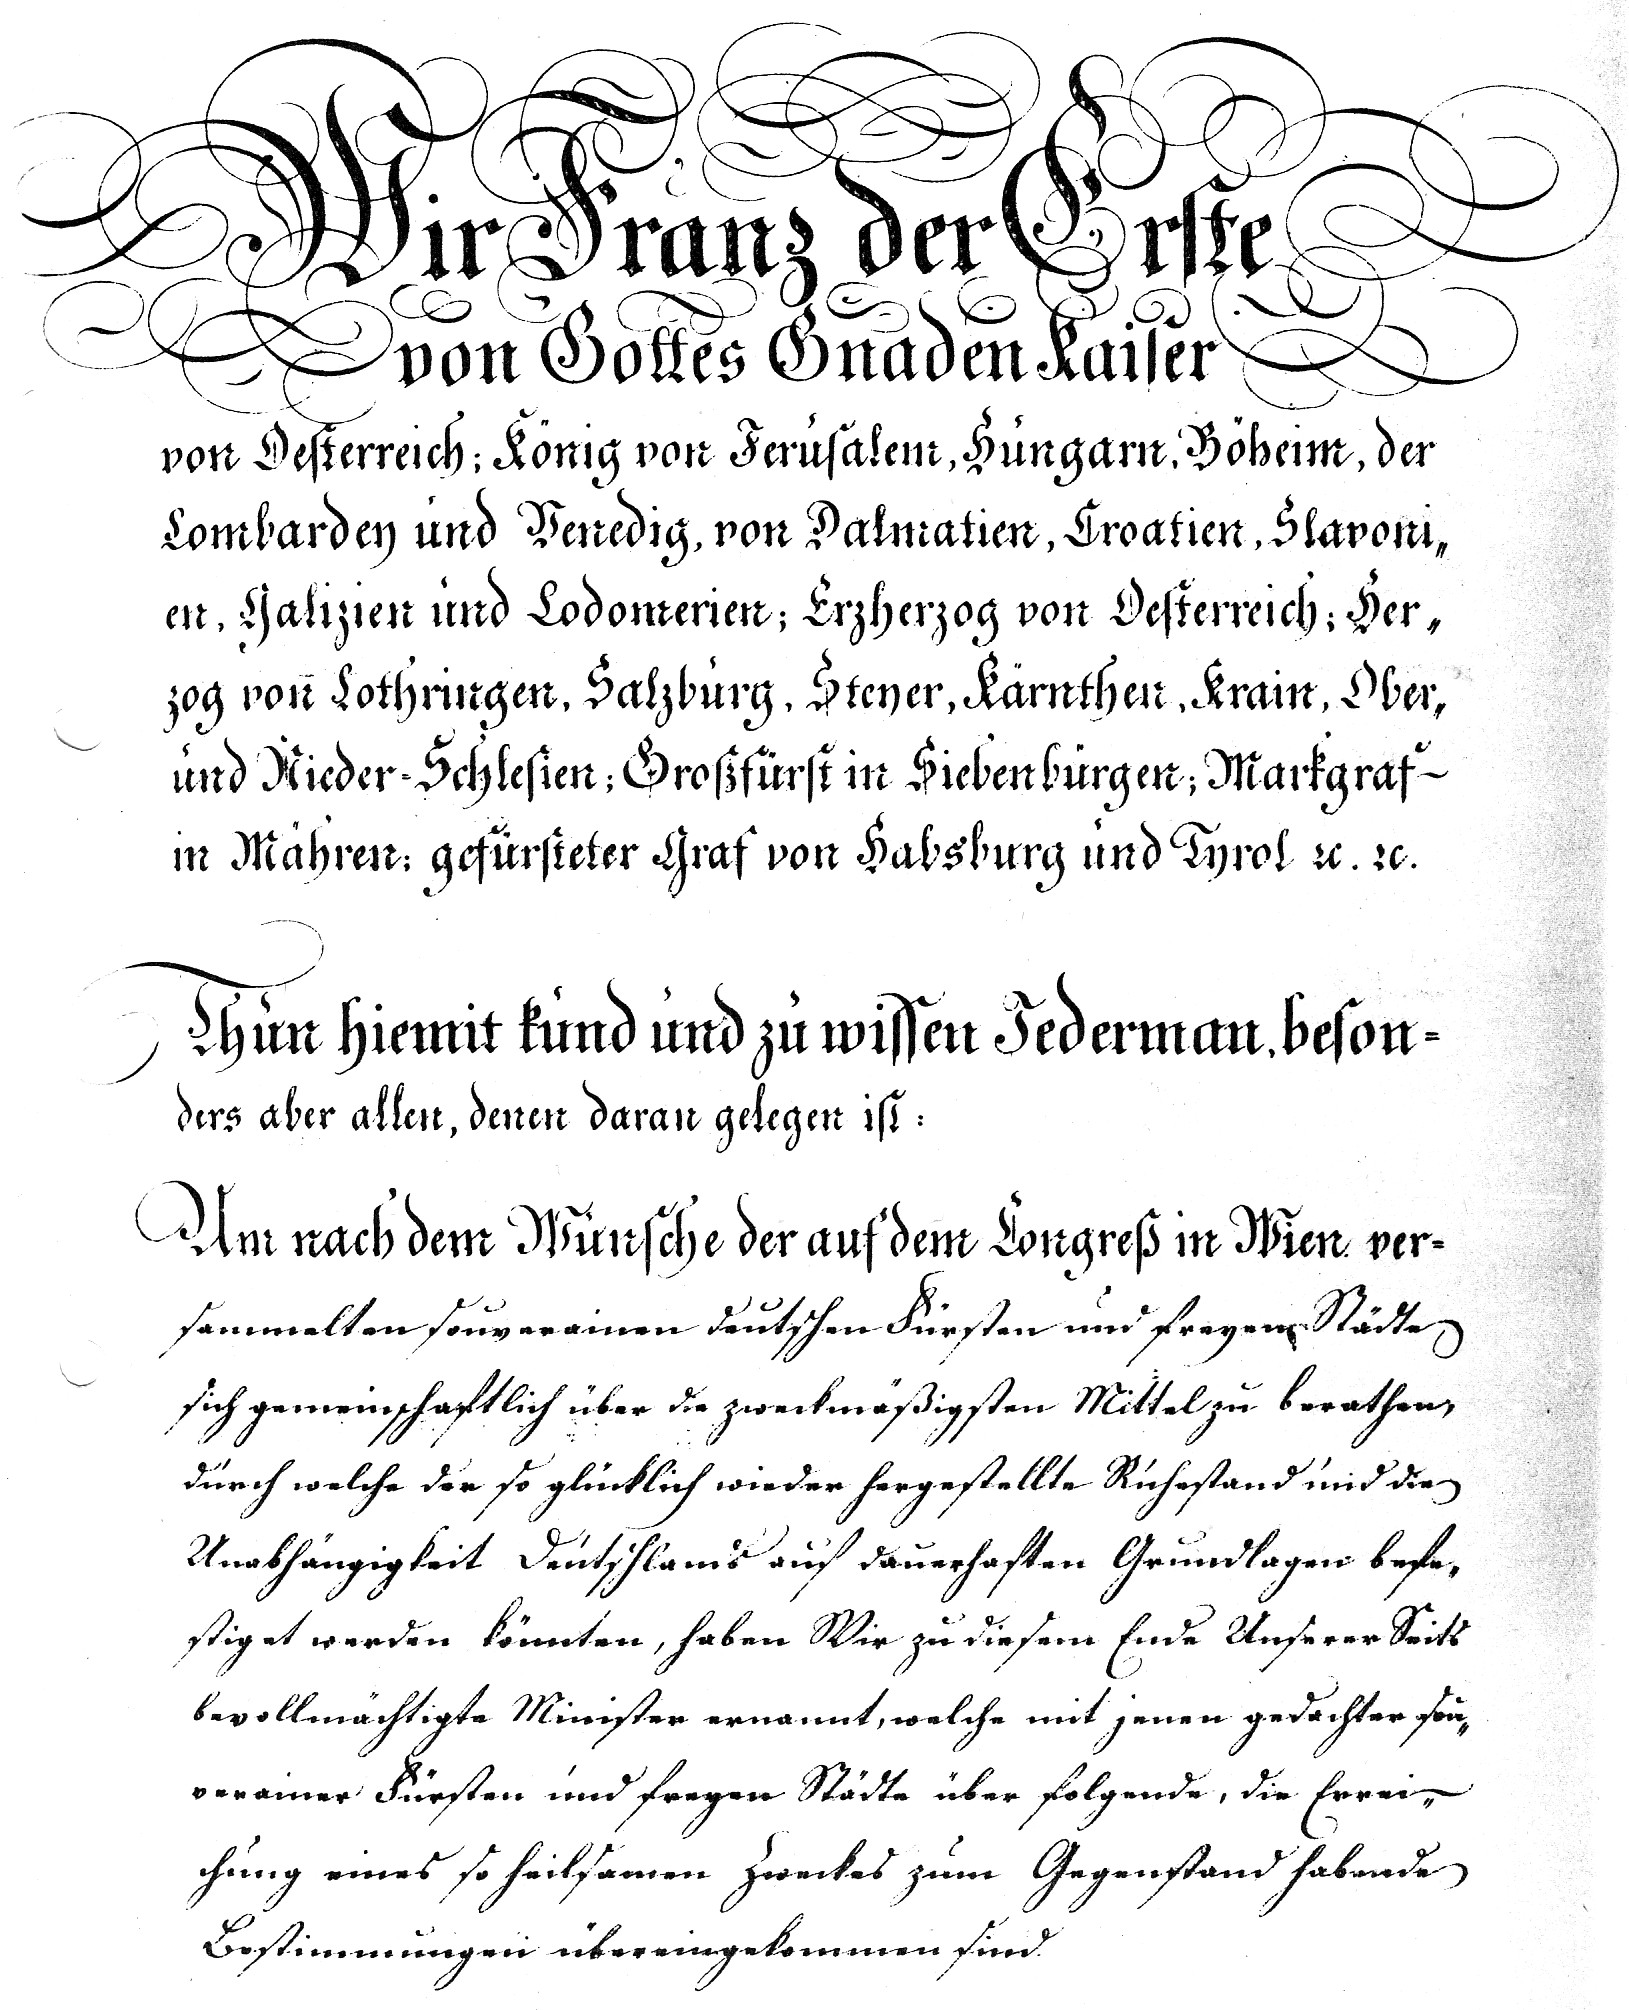 Wir Franz der Erste
von Gottes Gnaden Kaiser
von Oesterreich; König von Jerusalem, Hungarn, Böheim, der
Lombardey und Venedig, von Dalmatien, Croatien, Slavoni„
en, Galizien und Lodomerien; Erzherzog von Oesterreich; Her„
zog von Lothringen, Salzburg, Steyer, Kärnthen, Krain, Ober„
und Nieder-Schlesien; Großfürst in Siebenbürgen; Markgraf
in Mähren; gefürsteter Graf von Habsburg und Tyrol ꝛc. ꝛc.
Thun hiemit kund und zu wissen Jederman, beson=
ders aber allen, denen daran gelegen ist:
Um nach dem Wunsche der auf dem Congreß in Wien ver=
sammelten souverainen deutschen Fürsten und freyen Städte
sich gemeinschaftlich über die zweckmäßigsten Mittel zu berathen,
durch welche der so glücklich wieder hergestellte Ruhestand und die
Unabhängigkeit Deutschlands auf dauerhaften Grundlagen befe„
stiget werden könnten, haben Wir zu diesem Ende Unserer Seits
bevollmächtigte Minister ernannt, welche mit jenen gedachter sou„
verainer Fürsten und freyen Städte über folgende, die Errei„
chung eines so heilsamen Zweckes zum Gegenstand habende
Bestimmungen übereingekommen sind.